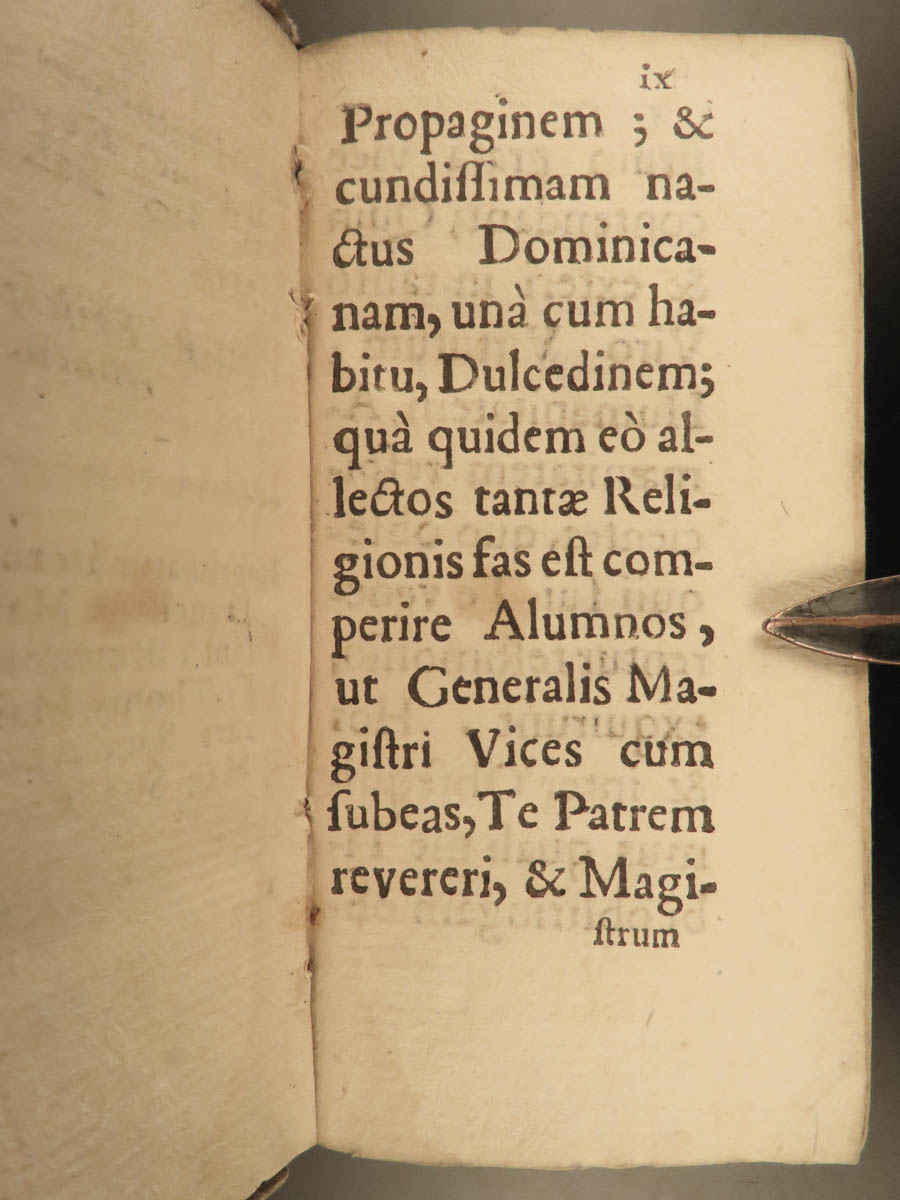 ix
Propaginem ; &
cundiſſimam na-
ctus Dominica-
nam, unà cum ha-
bitu, Dulcedinem;
quà quidem eò al-
lectos tantæ Reli-
gionis fas eſt com-
perire Alumnos,
ut Generalis Ma-
giſtri Vices cum
ſubeas, Te Patrem
revereri, & Magi-
ſtrum